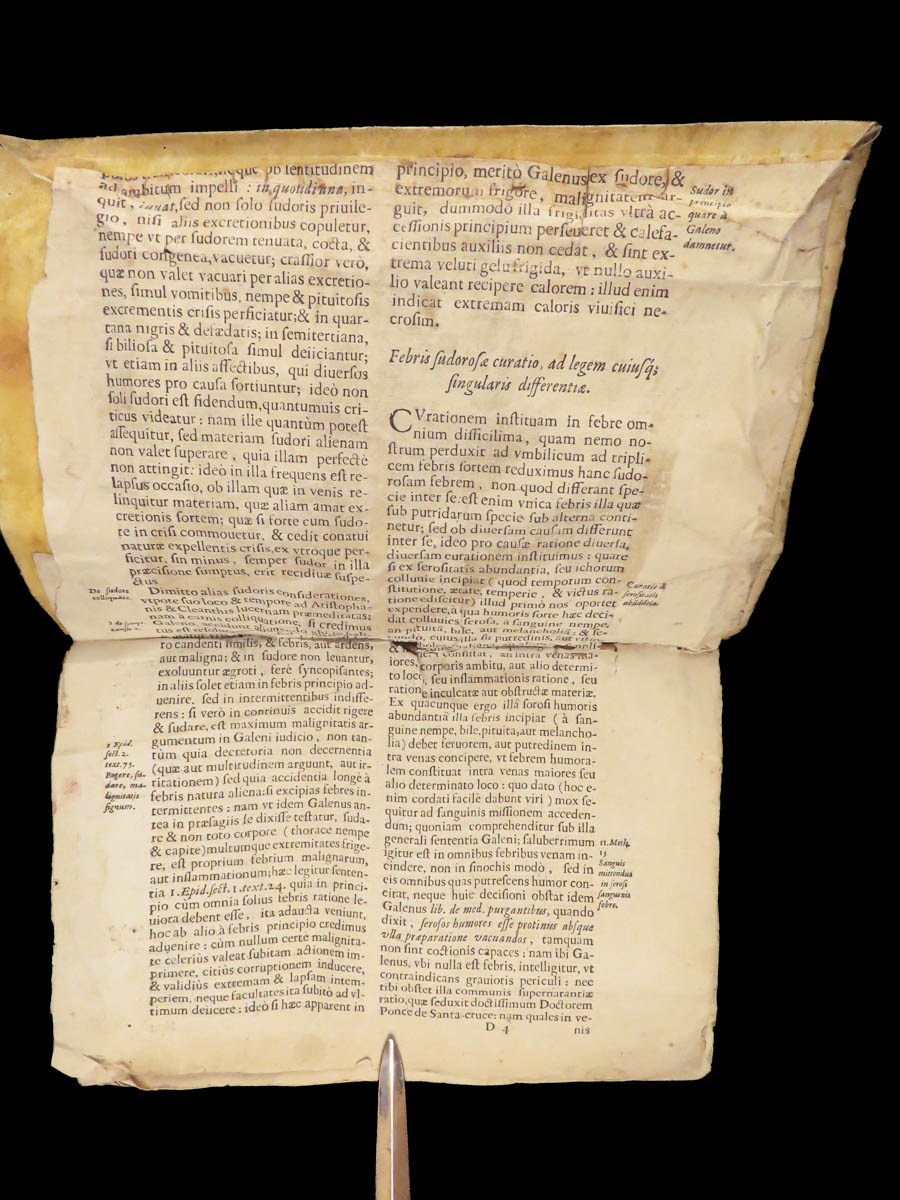 ad ambitum impelli : in quotidiana, in-
quit, iuuat, sed non solo sudoris priuile-
gio, nisi aliis excretionibus copuletur,
nempe vt per sudorem tenuata, cocta, &
sudori congenea, vacuetur; crassior verò,
quæ non valet vacuari per alias excretio-
nes, simul vomitibus, nempe & pituitosis
excrementis crisis perficiatur; & in quar-
tana nigris & defædatis; in semitertiana,
si biliosa & pituitosa simul deiiciantur;
vt etiam in aliis affectibus, qui diuersos
humores pro causa sortiuntur; ideò non
soli sudori est fidendum, quantumuis cri-
ticus videatur : nam ille quantùm potest
assequitur, sed materiam sudori alienam
non valet superare, quia illam perfectè
non attingit: ideò in illa frequens est re-
lapsus occasio, ob illam quæ in venis re-
linquitur materiam, quæ aliam amat ex-
cretionis sortem; quæ si forte cum sudo-
re in crisi commouetur, & cedit conatui
naturæ expellentis crisis, ex vtroque per-
ficitur, sin minus, semper sudor in illa
præcisione sumptus, erit recidiuæ suspe-
ctus
De sudore
colliquatio.
Dimitto alias sudoris considerationes,
vtpote suo loco & tempore ad Aristopha-
nis & Cleanthis lucernam præmeditatas:
nam à carnis colliquatione, si credimus
ro candenti similis, & febris, aut ardens,
aut maligna; & in sudore non leuantur,
exoluuntur ægroti, ferè syncopisantes;
in aliis solet etiam in febris principio ad-
uenire, sed in intermittentibus indiffe-
rens : si verò in continuis accidit rigere
& sudare, est maximum malignitatis ar-
gumentum in Galeni iudicio, non tan-
tùm quia decretoria non decernentia
(quæ aut multitudinem arguunt, aut ir-
ritationem) sed quia accidentia longè à
febris natura aliena: si excipias febres in-
termittentes : nam vt idem Galenus an-
tea in præsagiis se dixisse testatur, suda-
re & non toto corpore ( thorace nempe
& capite) multumque extremitates frige-
re, est proprium febrium malignarum,
aut inflammationum; hæc legitur senten-
tia 1. Epid. sect. 1. text. 24. quia in princi-
pio cùm omnia solius febris ratione le-
uiora debent esse, ita adaucta veniunt,
hoc ab alio à febris principio credimus
aduenire : cùm nullum certè malignita-
te celeriùs valeat subitam actionem im-
primere, citiùs corruptionem inducere,
& validiùs extremam & lapsam intem-
periem, neque facultates ita subitò ad vl-
timum deiicere : ideò si hæc apparent in
1 Epid.
sect. 2.
text. 75.
Rigere, su-
dare, ma-
lignitatis
signum.
principio, meritò Galenus ex sudore, &
extremorum frigore, malignitatem ar-
guit, dummodò illa frigiditas vltrà ac-
cessionis principium perseueret & calefa-
cientibus auxiliis non cedat, & sint ex-
trema veluti gelu frigida, vt nullo auxi-
lio valeant recipere calorem : illud enim
indicat extremam caloris viuifici ne-
crosim.
Sudor in
principio
quare à
Galeno
damnetur.
Febris sudorosæ curatio, ad legem cuiusq;
singularis differentiæ.
CVrationem instituam in febre om-
nium difficilima, quam nemo no-
strum perduxit ad vmbilicum ad tripli-
cem febris sortem reduximus hanc sudo-
rosam febrem, non quod differant spe-
cie inter se: est enim vnica febris illa quæ
sub putridarum specie sub alterna conti-
netur; sed ob diuersam causam differunt
inter se, ideo pro causæ ratione diuersa,
diuersam curationem instituimus : quare
si ex serositatis abundantia, seu ichorum
colluuie incipiat ( quod temporum con-
stitutione, ætate, temperie, & victus ra-
tione ediscitur) illud primò nos oportet
expendere, à qua humoris sorte hæc deci-
dat colluuies serosa, à sanguine nempe,
an pituita, bile, aut melancholia : & se-
Curatio à
serositatis
abundantia.
iores, corporis ambitu, aut alio determi-
to loco, seu inflammationis ratione, seu
ratione inculcatæ aut obstructæ materiæ.
Ex quacunque ergo illa serosi humoris
abundantia illa febris incipiat ( à san-
guine nempe, bile, pituita, aut melancho-
lia) debet feruorem, aut putredinem in-
tra venas concipere, vt febrem humora-
lem constituat intra venas maiores seu
alio determinato loco : quo dato (hoc e-
nim cordati facilè dabunt viri ) mox se-
quitur ad sanguinis missionem acceden-
dum; quoniam comprehenditur sub illa
generali sententia Galeni; saluberrimum
igitur est in omnibus febribus venam in-
cindere, non in sinochis modò, sed in
eis omnibus quas putrescens humor con-
citat, neque huic decisioni obstat idem
Galenus lib. de med. purgantibus, quando
dixit, serosos humores esse protinus absque
vlla præparatione vacuandos, tamquam
non sint coctionis capaces : nam ibi Ga-
lenus, vbi nulla est febris, intelligitur, vt
contraindicans grauioris periculi : nec
tibi obstet illa communis supernatantiæ
ratio, quæ seduxit doctissimum Doctorem
Ponce de Santa-cruce: nam quales in ve-
11. Meth.
15
Sanguis
mittendus
in serosi
sanguinis
febre.
D 4
nis